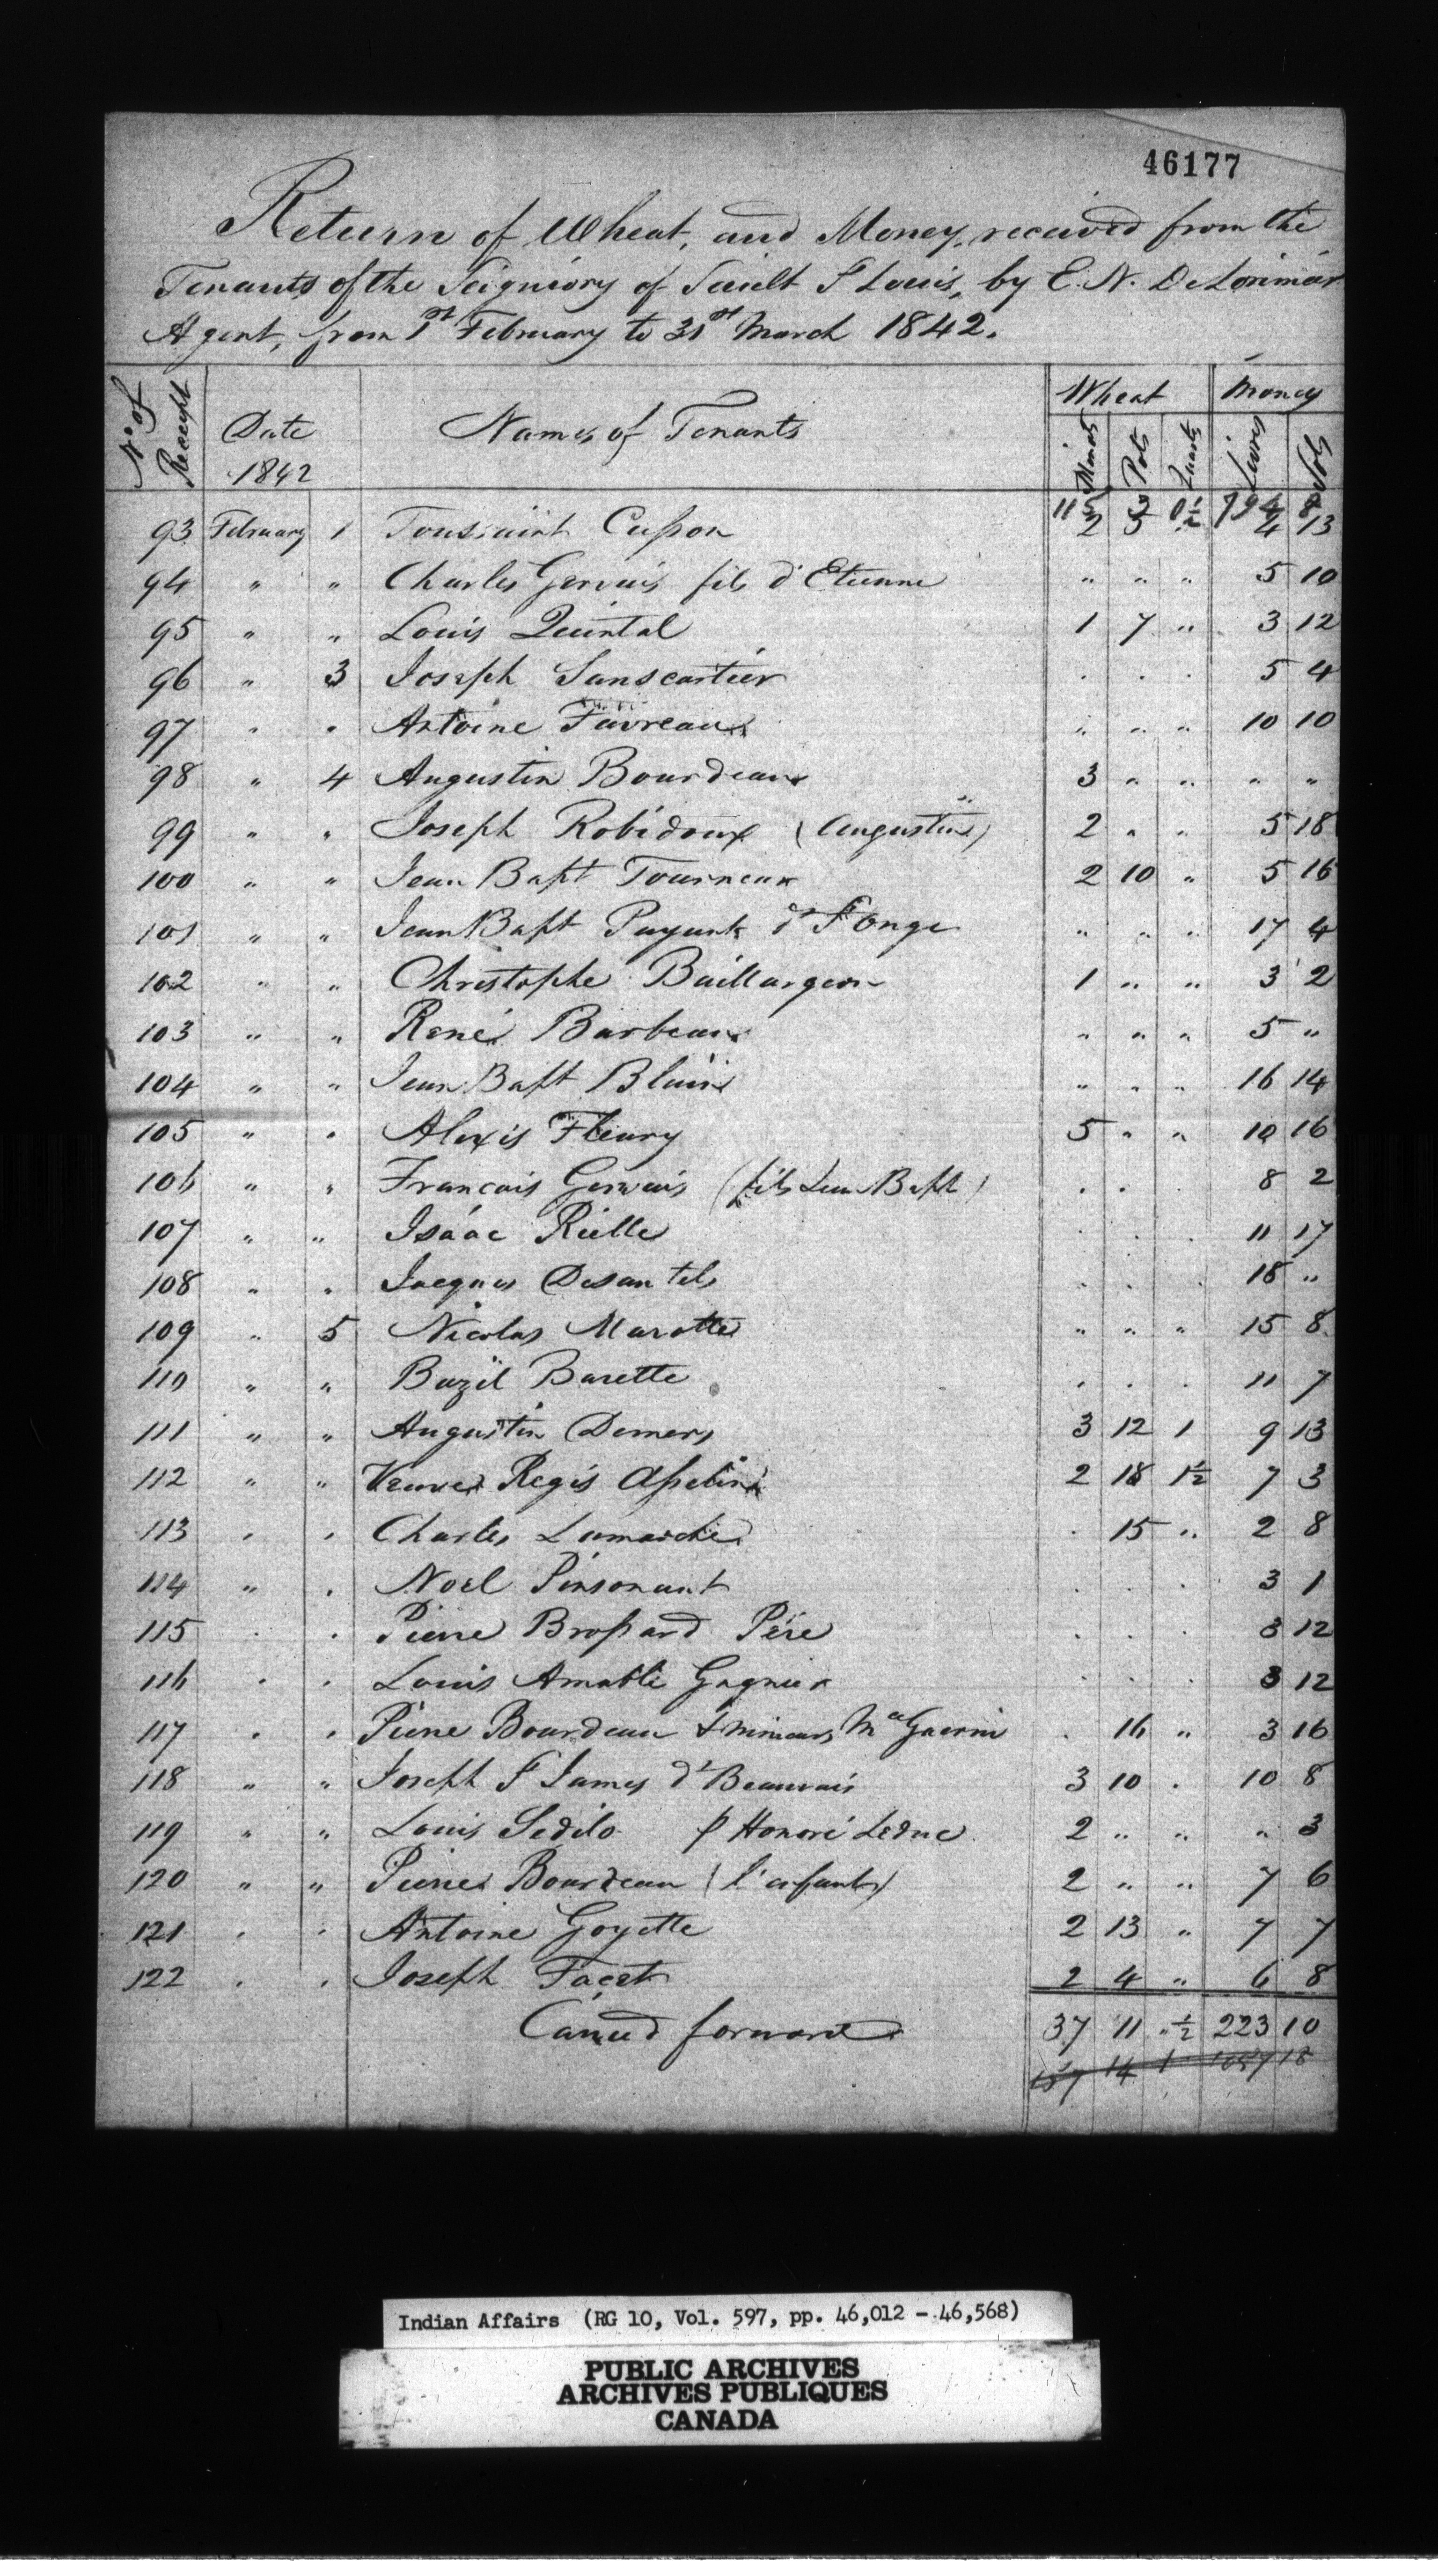 46177
Return of Wheat, and Money, received from the
Tenants of the Seigniory of Sault St Louis, by E. N. DeLorimier
Agent, from 1st February to 31st March 1842.
No of Receipt Date 1842 Names of Tenants Wheat Minots Pots Quarts Money Livres Sols
115 3 0½ 794 8
93 February 1 Toussaint Cusson 2 5 .. 4 13
94 " " Charles Gervais fils d'Etienne " " " 5 10
95 " " Louis Quintal 1 7 " 3 12
96 " 3 Joseph Sanscartier . . . 5 4
97 " " Antoine Favreau " " " 10 10
98 " 4 Augustin Bourdeau 3 " " " "
99 " " Joseph Robidoux (Augustin) 2 " " 5 18
100 " " Jean Bapt Tourneux 2 10 " 5 16
101 " " Jean Bapt Payant dt St Onge " " " 17 4
102 " " Christophe Baillargeon 1 " " 3 2
103 " " René Barbeau " " " 5 "
104 " " Jean Bapt Blain " " " 16 14
105 " " Alexis Fleury 5 " " 10 16
106 " " Francois Gervais (fils Jean Bapt) . . . 8 2
107 " " Isaac Rielle . . . 11 17
108 " " Jacques Desautels . . . 18 "
109 " 5 Nicolas Marotte " " " 15 8
110 " " Bazil Barette . . . 11 7
111 " " Augustin Demers 3 12 1 9 13
112 " " Veuve Regis Asselin 2 18 1½ 7 3
113 " " Charles Lamarche . 15 " 2 8
114 " " Noel Pinsonaut . . . 3 1
115 . . Pierre Brossard Père . . . 3 12
116 . . Louis Amable Gagnier . . . 3 12
117 . . Pierre Bourdeau & mineurs Guerin . 16 " 3 16
118 " " Joseph St James dt Beauvais 3 10 . 10 8
119 " " Louis Sedilo p Honoré Leduc 2 " " " 3
120 " " Pierre Bourdeau (l'enfant) 2 " " 7 6
121 . . Antoine Goyette 2 13 " 7 7
122 . . Joseph Facet 2 4 " 6 8
Carried forward 37 11 "½ 223 10
157 14 1 18
Indian Affairs (RG 10, Vol. 597, pp. 46,012 - 46,568)
PUBLIC ARCHIVES
ARCHIVES PUBLIQUES
CANADA